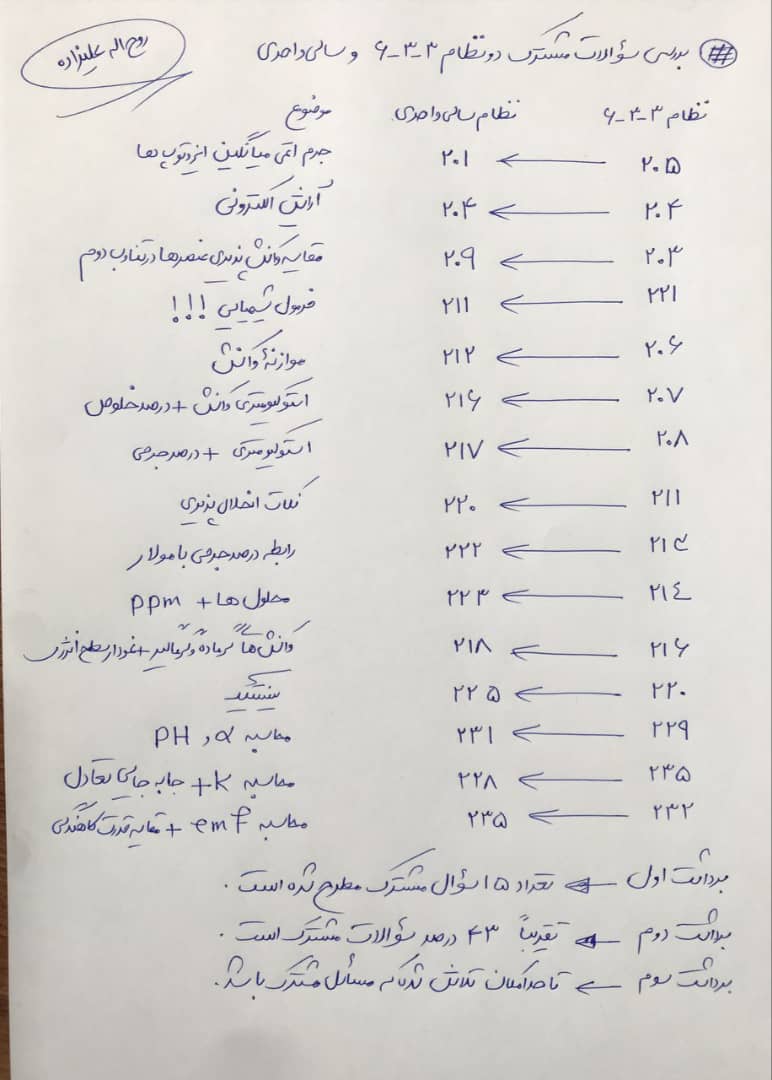 # بررسی سؤالات مشترک دو نظام ۳-۳-۶ و سالی واحدی
روح اله علیزاده
نظام ۳-۳-۶ نظام سالی واحدی موضوع
۲۰۵ ← ۲۰۱ جرم اتمی میانگین ایزوتوپ ها
۲۰۴ ← ۲۰۴ آرایش الکترونی
۲۰۳ ← ۲۰۹ مقایسه واکنش پذیری عنصرها در تناوب دوم
۲۲۱ ← ۲۱۱ فرمول شیمیایی !!!
۲۰۶ ← ۲۱۲ موازنهٔ واکنش
۲۰۷ ← ۲۱۶ استوکیومتری واکنش + درصد خلوص
۲۰۸ ← ۲۱۷ استوکیومتری + درصد جرمی
۲۱۱ ← ۲۲۰ نکات انحلال پذیری
۲۱۳ ← ۲۲۲ رابطه درصد جرمی با مولار
۲۱۴ ← ۲۲۳ محلول ها + ppm
۲۱۶ ← ۲۱۸ واکنش های گرماده و گرماگیر + نمودار سطح انرژی
۲۲۰ ← ۲۲۵ سینتیک
۲۲۹ ← ۲۳۱ محاسبه α و PH
۲۳۵ ← ۲۲۸ محاسبه k + جابه جایی تعادل
۲۳۲ ← ۲۳۵ محاسبه emf + مقایه قدرت کاهندگی
برداشت اول ← تعداد ۱۵ سؤال مشترک مطرح شده است.
برداشت دوم ← تقریباً ۴۳ درصد سؤالات مشترک است.
برداشت سوم ← تا حد امکان تلاش شده که مسائل مشترک باشد.